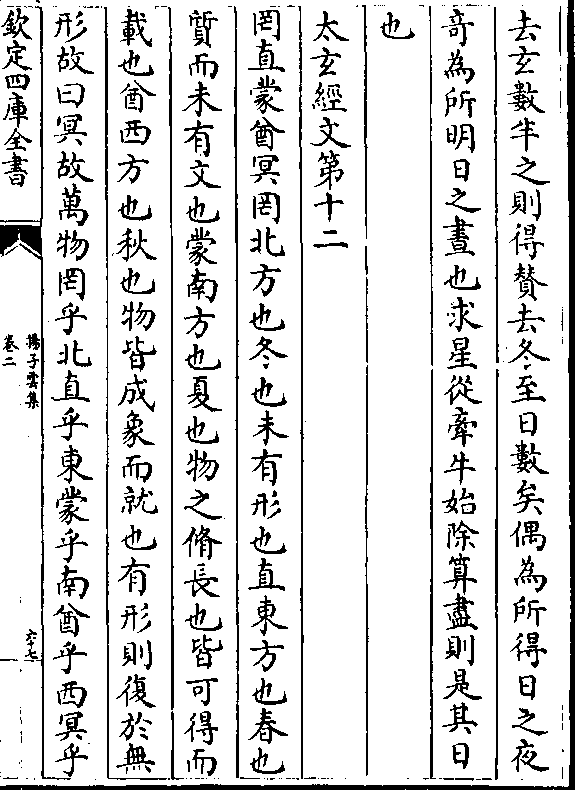 去玄數半之則得賛去冬至日數矣偶為所得日之夜
奇為所明日之晝也求星從牽牛始除算盡則是其日
也
太玄經文第十二
罔直蒙酋冥罔北方也冬也未有形也直東方也春也
質而未有文也蒙南方也夏也物之脩長也皆可得而
載也酋西方也秋也物皆成象而就也有形則復於無
形故曰冥故萬物罔乎北直乎東蒙乎南酋乎西冥乎
欽定四庫全書
揚子雲集
卷二
六十七